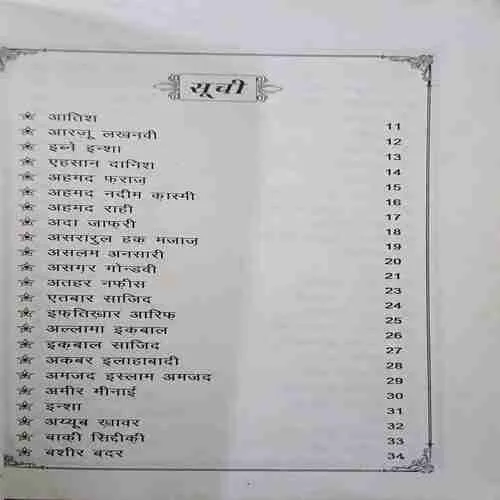 सूची
आतिश 11
आरज़ू लखनवी 12
इब्ने इन्शा 13
एहसान दानिश 14
अहमद फ़राज़ 15
अहमद नदीम क़ास्मी 16
अहमद राही 17
अदा जाफ़री 18
असरारुल हक़ मजाज़ 19
असलम अनसारी 20
असग़र गोन्डवी 21
अतहर नफ़ीस 23
एतबार साजिद 24
इफ़तिख़ार आरिफ़ 25
अल्लामा इक़बाल 26
इक़बाल साजिद 27
अकबर इलाहाबादी 28
अमजद इस्लाम अमजद 29
अमीर मीनाई 30
इन्शा 31
अय्यूब ख़ावर 32
बाक़ी सिद्दीकी 33
बशीर बदर 34